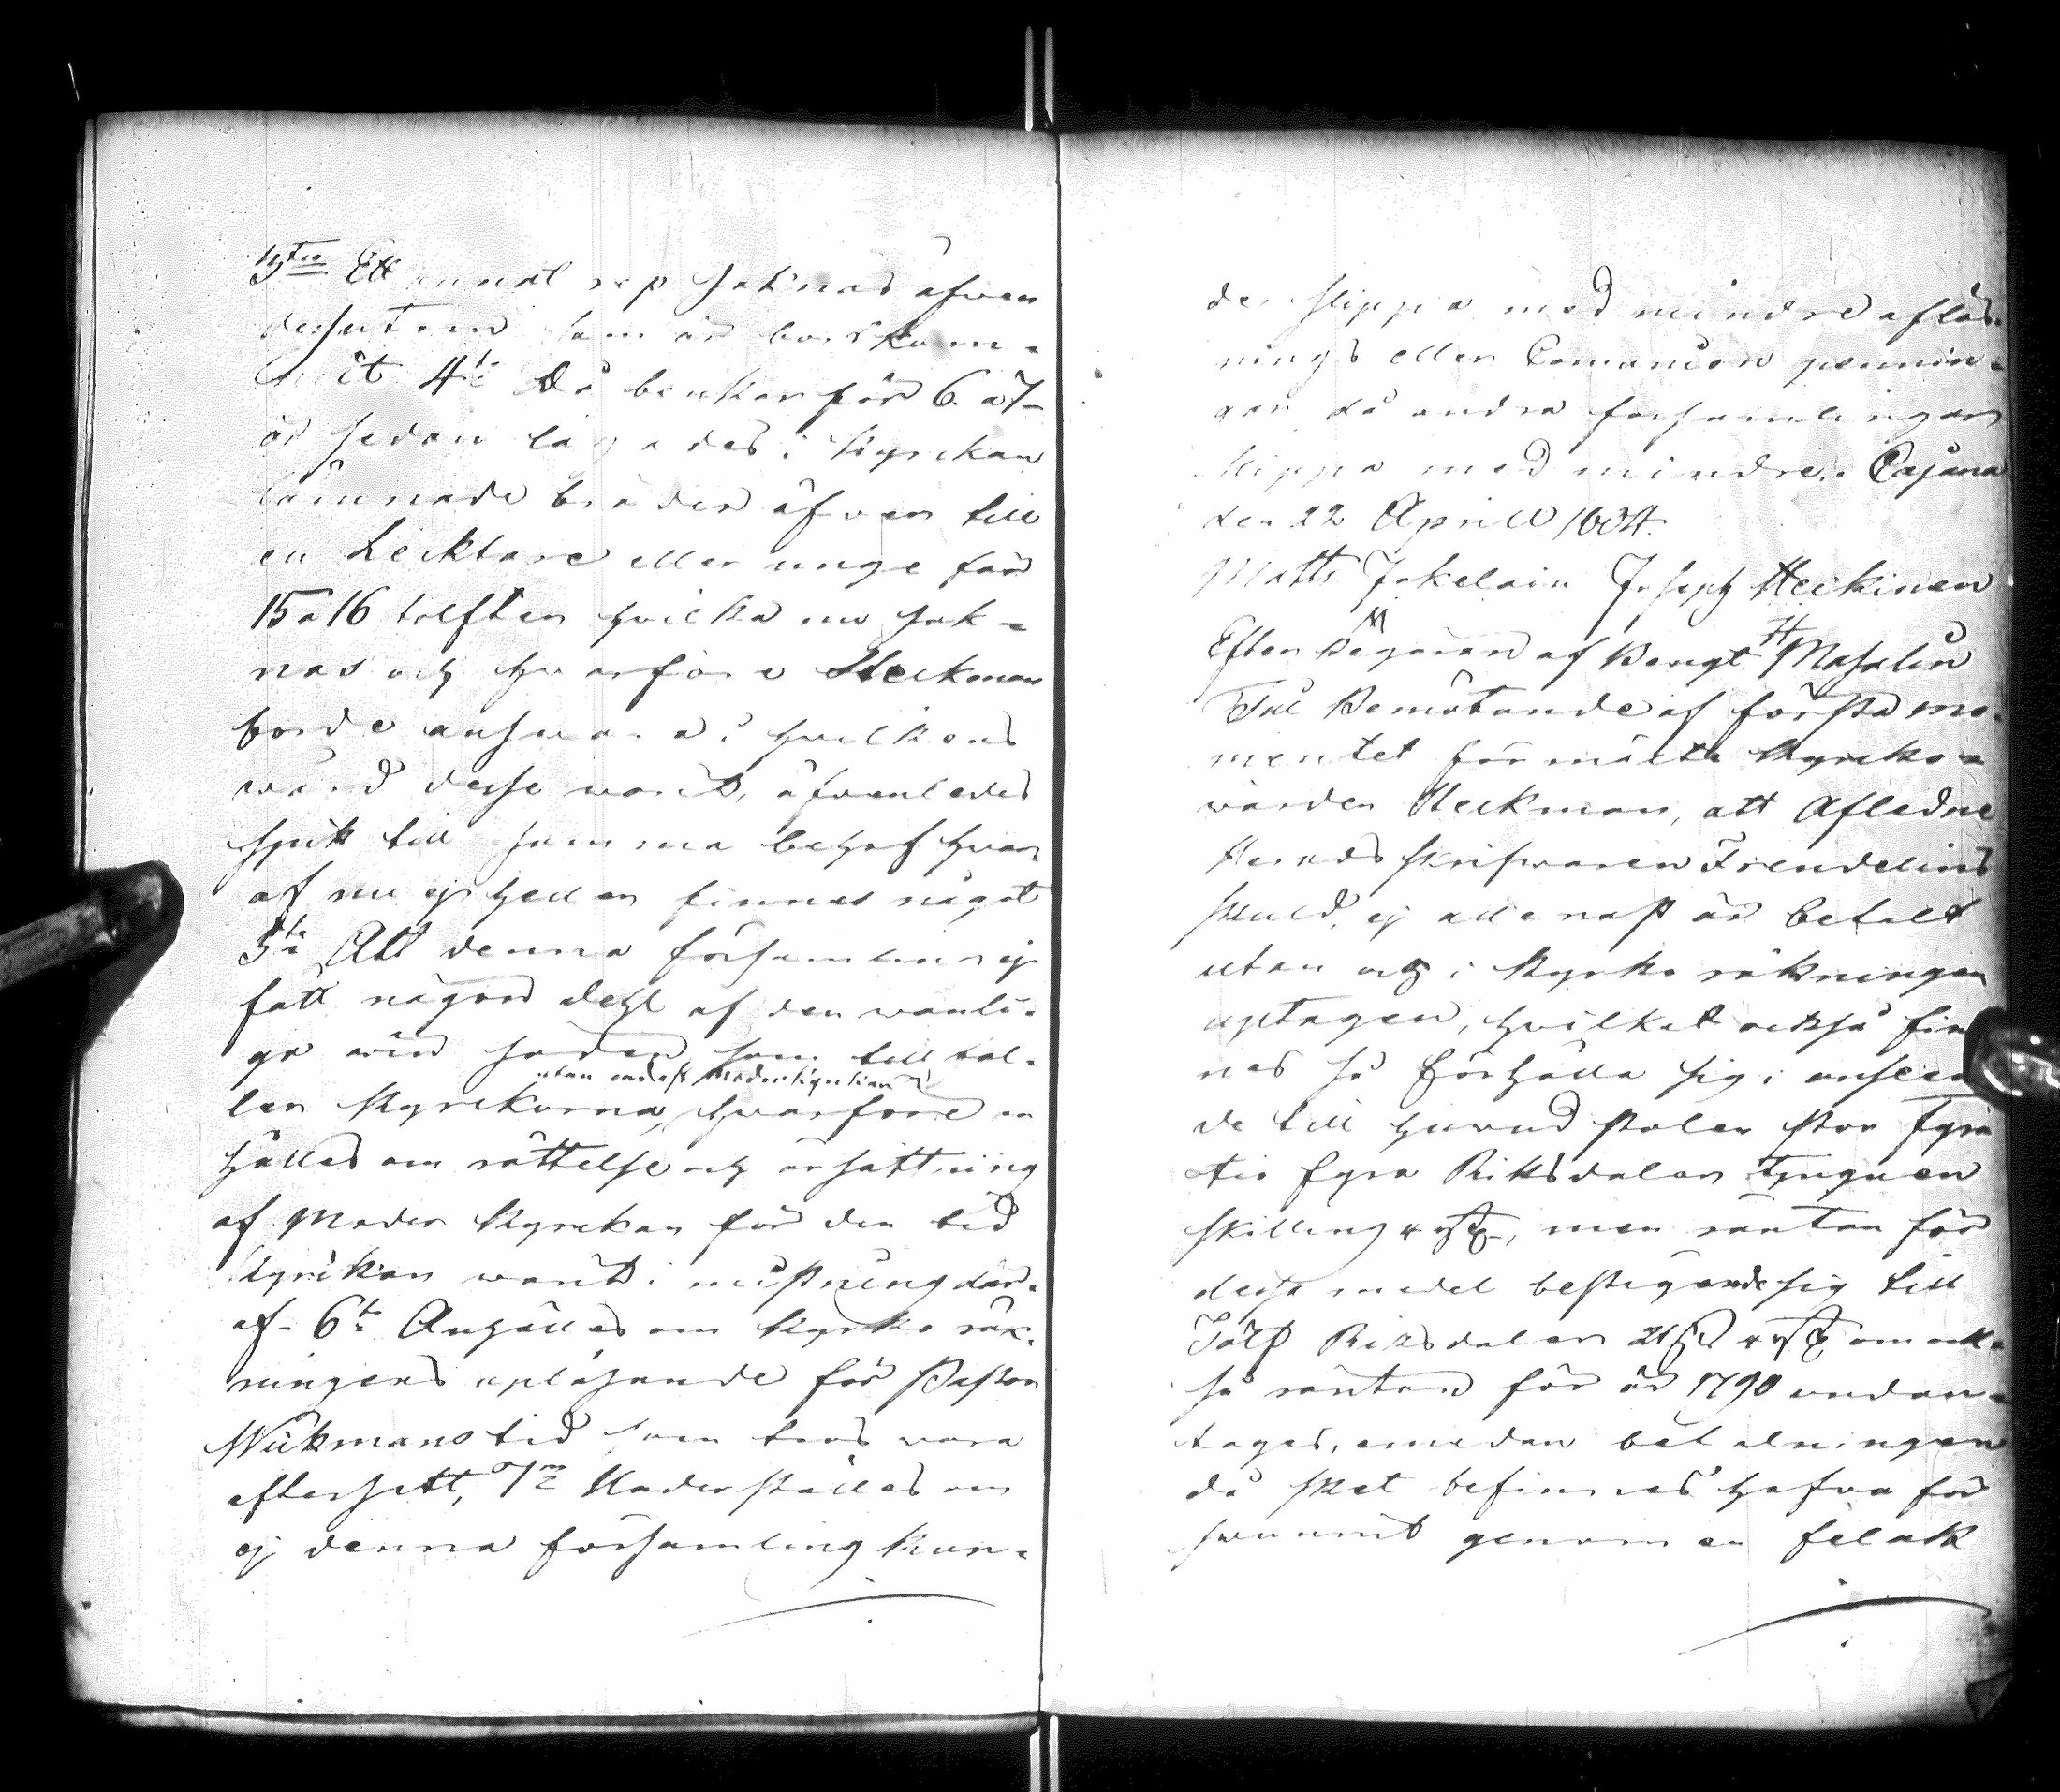 3tio Ett annat rep saknas äfwen
dessutom som är bortkom=
mit 4to Då bänkar för 6 a 7
år sedan lagades i Kyrckan
lämnade bräder äfwen till
en Lecktare eller unge fär
15 a 16 tolfter hvilka nu sak=
nas och hvarföre Heckman
borde answara i hvilkens
wård desse warit, äfwenledes
spik till samma behof hvar
af nu ej heller finnes något
5to Att denna församling ej
fått någon dehl af den wanli=
ga som till tal=
utan endast Moderkyrckan
ler Kyrckorna, hwarföre an
hålles om rättelse och ersättning
af Moder Kyrckan för den tid
Kyrckan warit i mistning där=
af. 6to Anhålles om Kyrko räk=
ningens upläsande för Pastor
Wickmans tid som tros wara
eftersatt, 7mo Underställes om
ej denna församling kun=
de slippa med mindre aflös=
nings eller penin=
gar då andra församlingar
slippa med mindre. Cajana
den 22 Aprill 1804.
Matts Jokelain Joseph Heckinen
Efter Begäran af Bengt H Masalin
Till Bemötande af första mo=
mentet förmälte Kyrcko=
wärden Heckman, att Aflednе
Herads skrifwaren Frendelins
skuld, ej allenast är betalt
utan och i Kyrko räkningen
uptagen, hvilket också fin
nes så förhålla sig i anseen
de till huwudstolen stor fyra
tio fyra Riksdaler Tjuguen
skilling 4 rst, men räntan för
dessa medel bestigande sig till
Tolf Riksdaler 21 s 4 rst om ock=
så räntan för år 1790 undan=
tages, emedan betalningen
då sket befinnes hafwa för
swunnit genom en felak